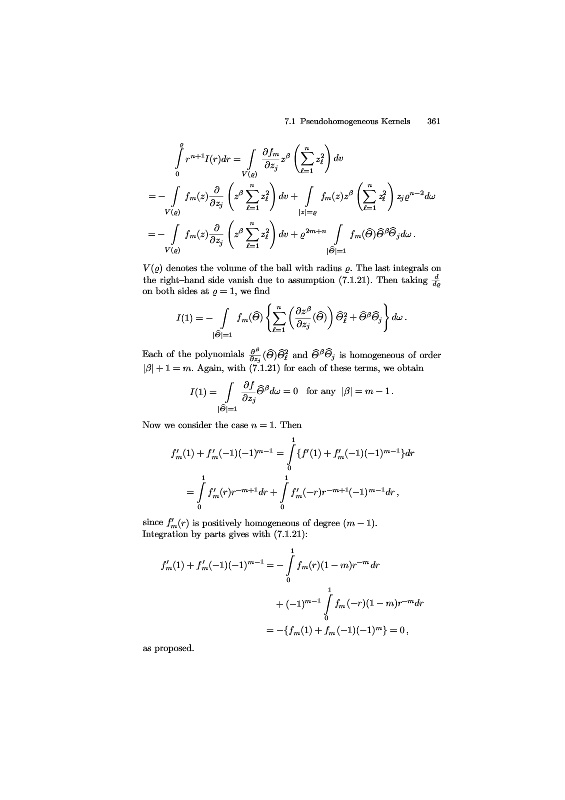 7.1 Pseudohomogeneous Kernels 361
∫_0^ϱ r^{n+1} I(r)dr = ∫_{V(ϱ)} ∂f_m/∂z_j z^β (∑_{ℓ=1}^n z_ℓ^2) dv
= − ∫_{V(ϱ)} f_m(z) ∂/∂z_j (z^β ∑_{ℓ=1}^n z_ℓ^2) dv + ∫_{|z|=ϱ} f_m(z)z^β (∑_{ℓ=1}^n z_ℓ^2) z_j ϱ^{n−2} dω
= − ∫_{V(ϱ)} f_m(z) ∂/∂z_j (z^β ∑_{ℓ=1}^n z_ℓ^2) dv + ϱ^{2m+n} ∫_{|Θ̂|=1} f_m(Θ̂)Θ̂^β Θ̂_j dω .
V(ϱ) denotes the volume of the ball with radius ϱ. The last integrals on
the right–hand side vanish due to assumption (7.1.21). Then taking d/dϱ
on both sides at ϱ = 1, we find
I(1) = − ∫_{|Θ̂|=1} f_m(Θ̂) {∑_{ℓ=1}^n (∂z^β/∂z_j (Θ̂)) Θ̂_ℓ^2 + Θ̂^β Θ̂_j} dω .
Each of the polynomials ∂^β/∂z_j (Θ̂)Θ̂_ℓ^2 and Θ̂^β Θ̂_j is homogeneous of order
|β| + 1 = m. Again, with (7.1.21) for each of these terms, we obtain
I(1) = ∫_{|Θ̂|=1} ∂f/∂z_j Θ̂^β dω = 0 for any |β| = m − 1 .
Now we consider the case n = 1. Then
f′_m(1) + f′_m(−1)(−1)^{m−1} = ∫_0^1 {f′(1) + f′_m(−1)(−1)^{m−1}}dr
= ∫_0^1 f′_m(r)r^{−m+1}dr + ∫_0^1 f′_m(−r)r^{−m+1}(−1)^{m−1}dr ,
since f′_m(r) is positively homogeneous of degree (m − 1).
Integration by parts gives with (7.1.21):
f′_m(1) + f′_m(−1)(−1)^{m−1} = − ∫_0^1 f_m(r)(1 − m)r^{−m} dr
+ (−1)^{m−1} ∫_0^1 f_m(−r)(1 − m)r^{−m}dr
= −{f_m(1) + f_m(−1)(−1)^m} = 0 ,
as proposed.